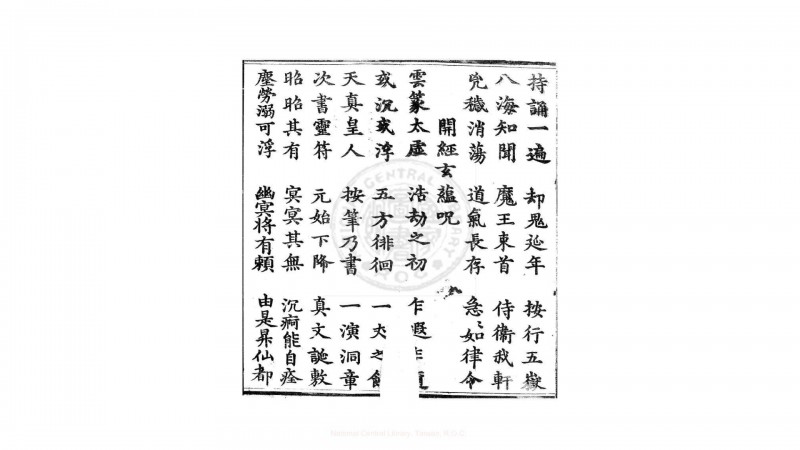 持誦一遍 却鬼延年 按行五嶽
八海知聞 魔王束首 侍衛我軒
兇穢消蕩 道氣長存 急〻如律令
開經玄蘊呪
雲篆太虛 浩劫之初 乍遐
或沉或浮 五方徘徊 一丈之餘
天真皇人 按筆乃書 一演洞章
次書靈符 元始下降 真文誕敷
昭昭其有 冥冥其無 沉痾能自痊
塵勞溺可浮 幽冥將有賴 由是昇仙都
National Central Library, Taiwan, R.O.C